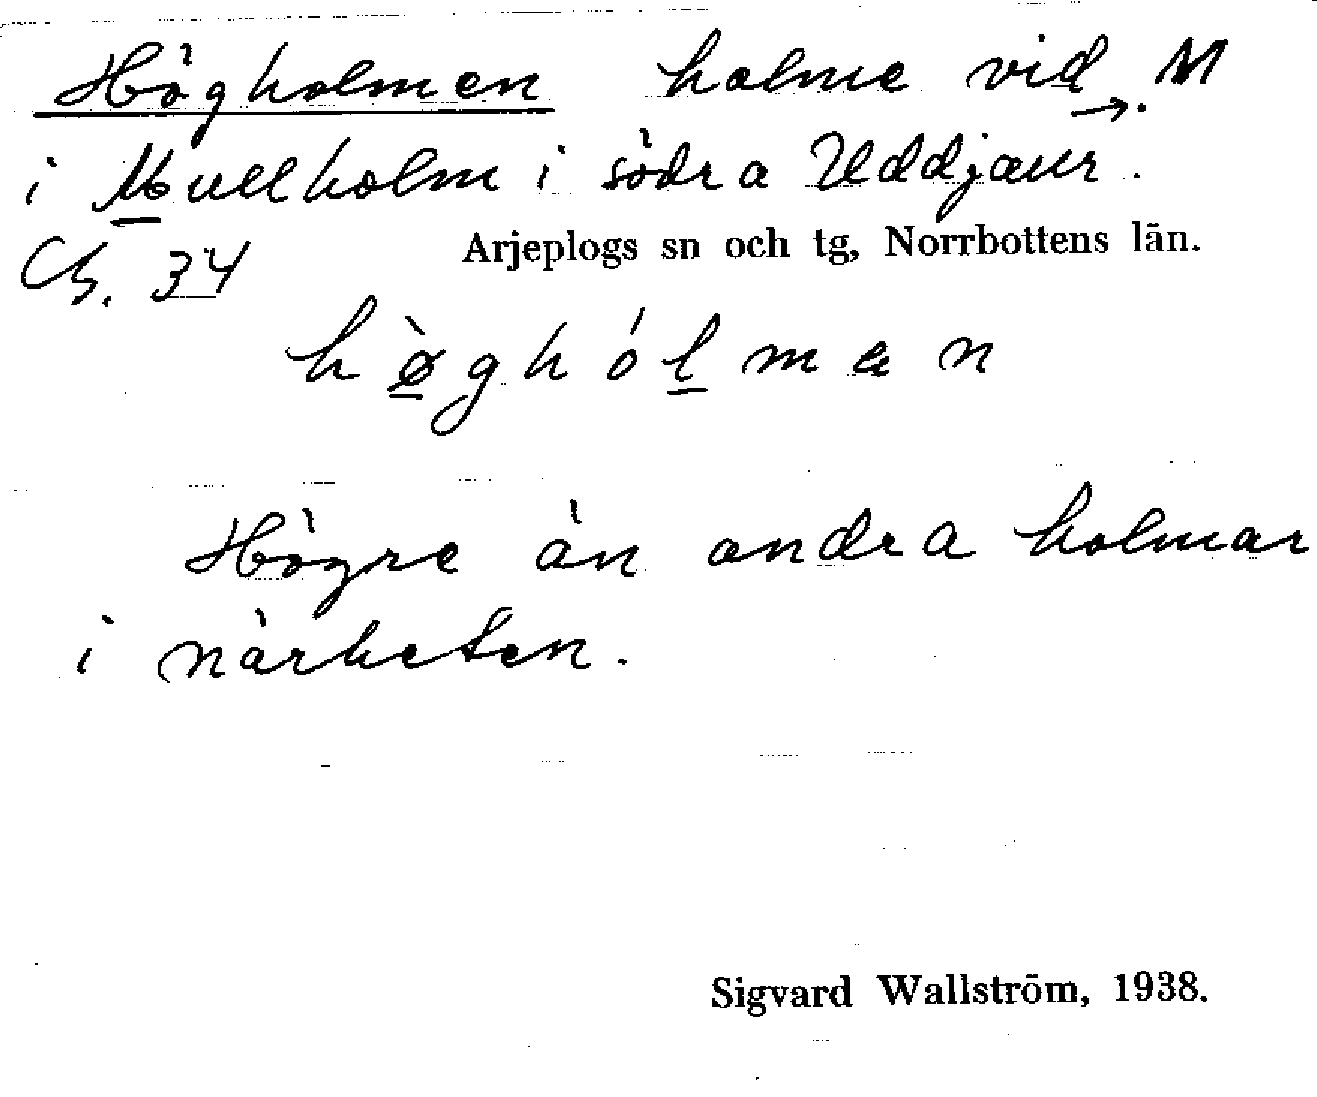 Högholmen holme vid →. M
i Mullholm i södra Uddjaur.
Arjeplogs sn och tg, Norrbottens län.
34
hø̀ghólmən
Högre än andra holmar
i närheten.
Sigvard Wallström, 1938.